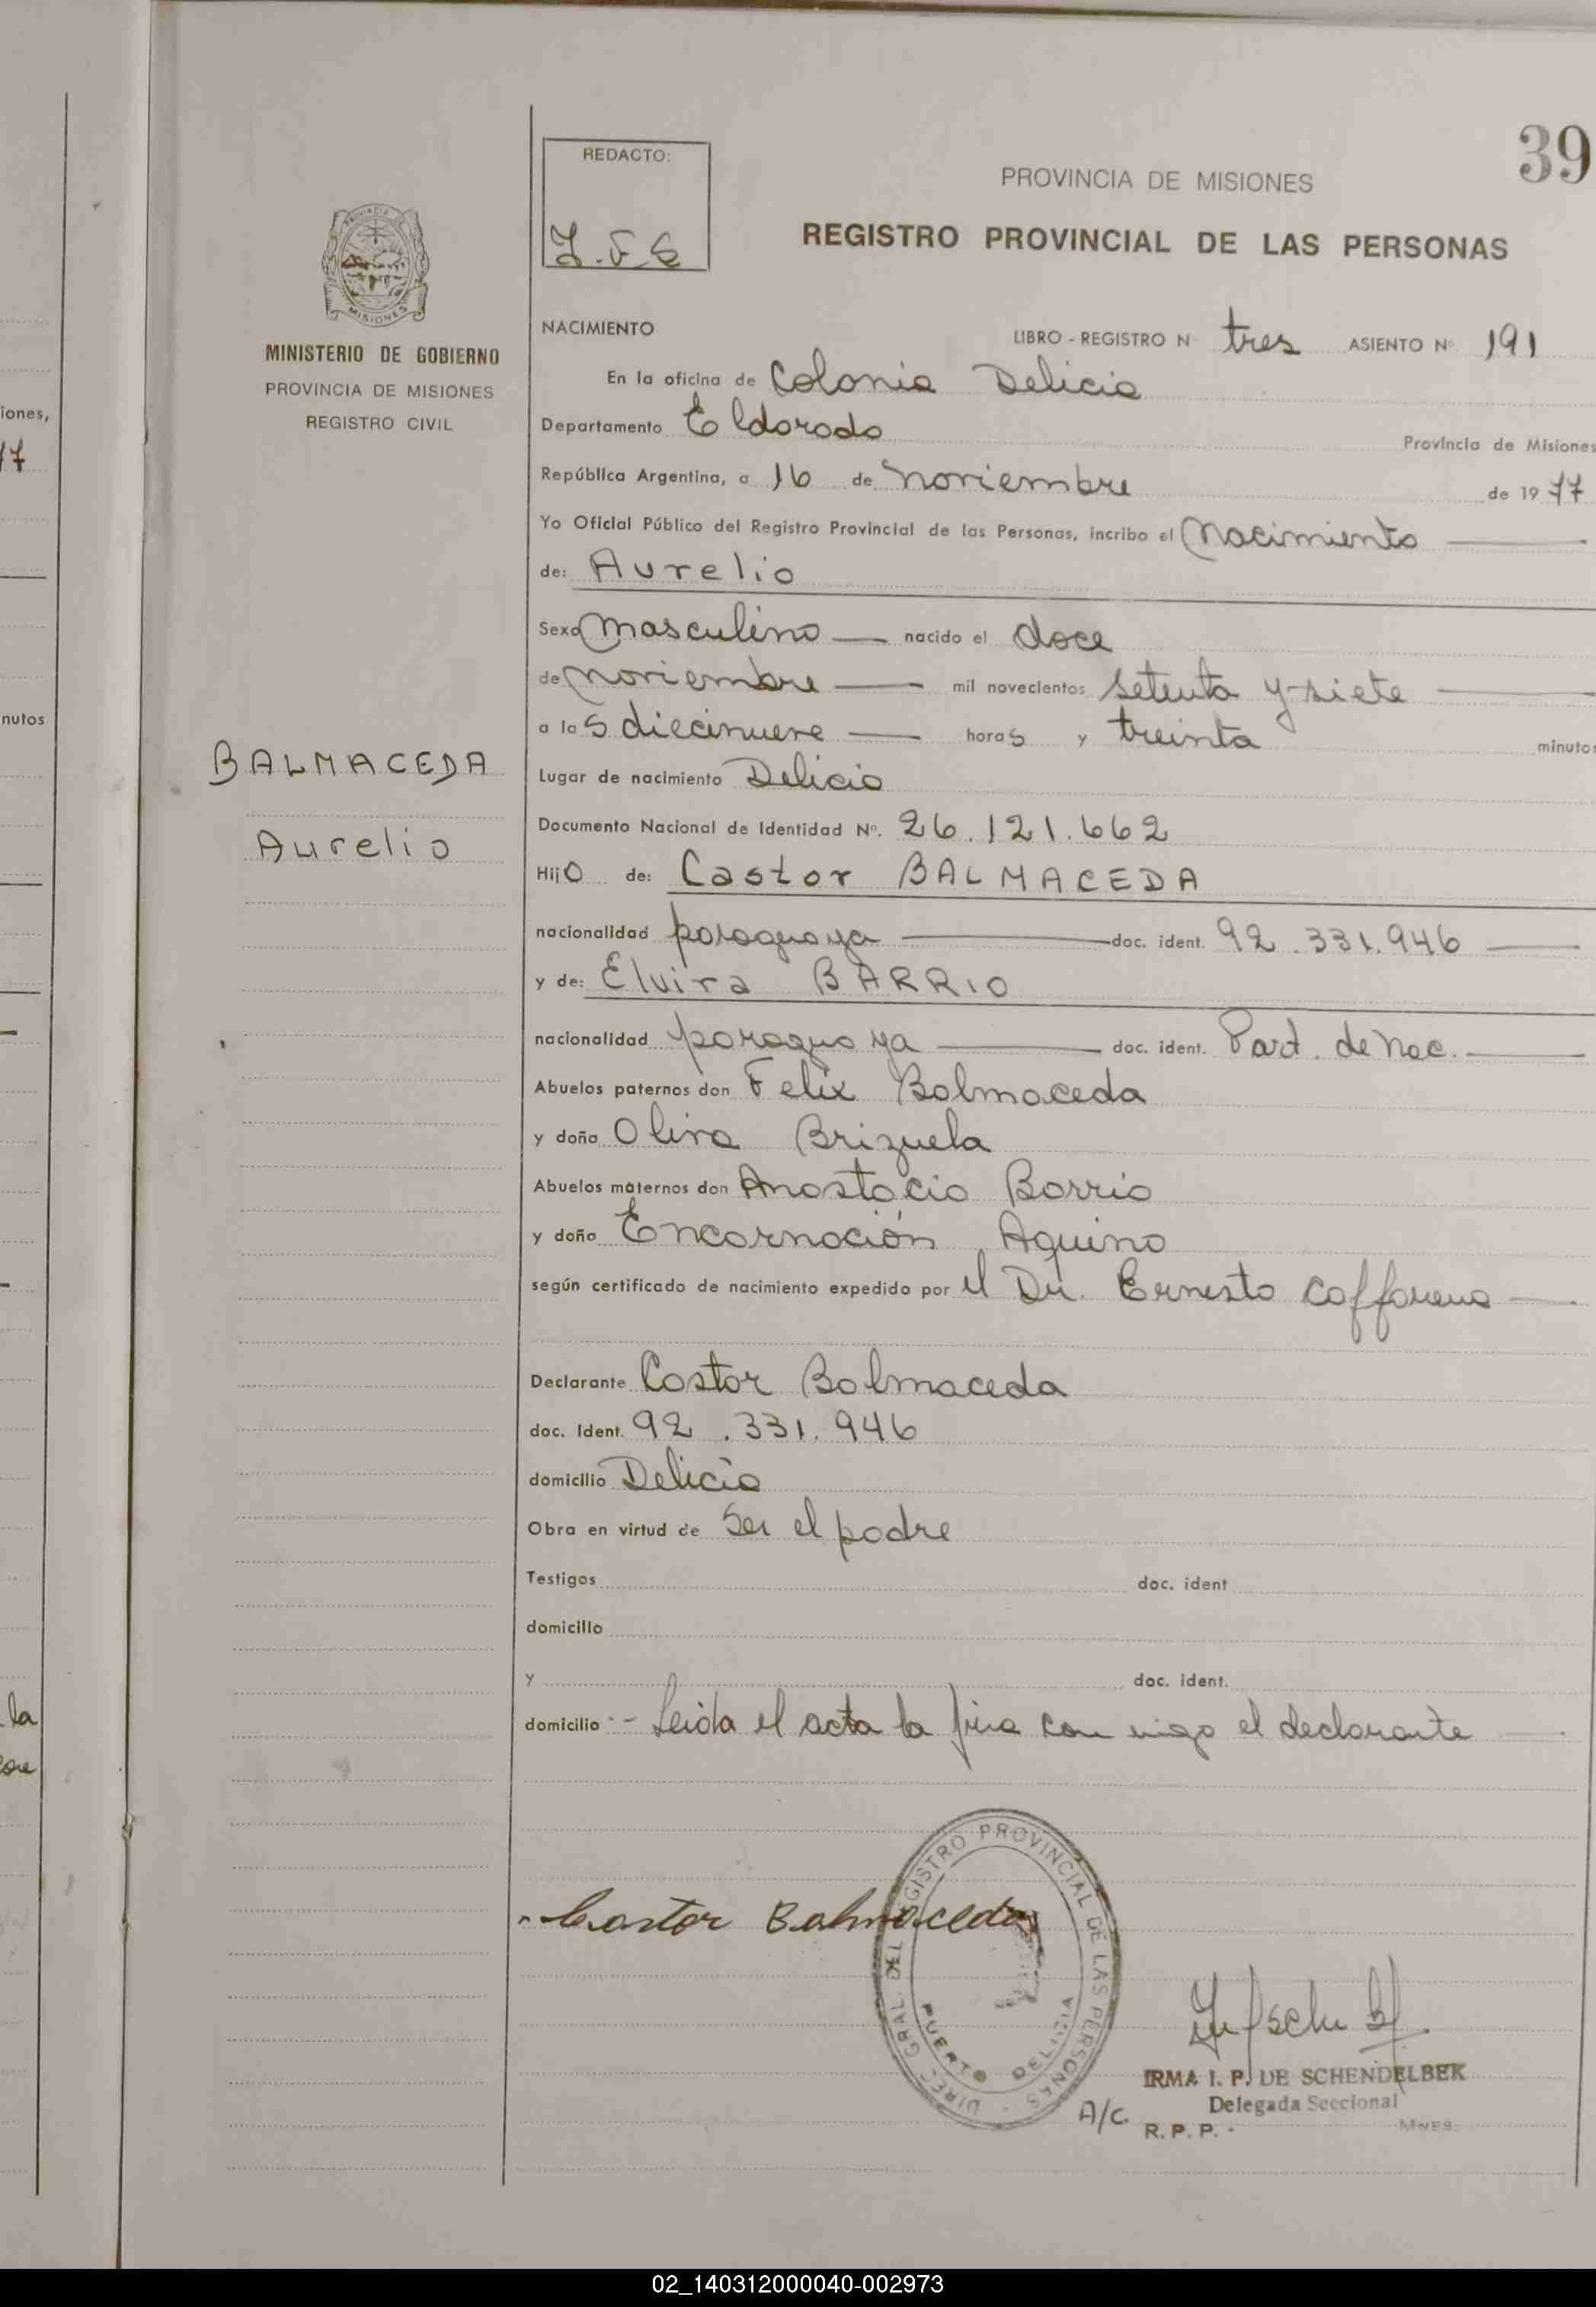 39
REDACTO:
PROVINCIA DE MISIONES
REGISTRO PROVINCIAL DE LAS PERSONAS
MISIONES
MINISTERIO DE GOBIERNO
PROVINCIA DE MISIONES
REGISTRO CIVIL
BALMACEDA
Aurelio
NACIMIENTO LIBRO - REGISTRO N tres ASIENTO Nº 191
En la oficina de Colonia Delicia
Departamento Eldorado Provincia de Misiones
República Argentina, a 16 de Noviembre de 19 77
Yo Oficial Público del Registro Provincial de las Personas, incribo el Nacimiento
de: Aurelio
Sexo masculino nacido el doce
de noviembre mil novecientos setenta y siete
a las diecinueve horas y treinta minutos
Lugar de nacimiento Delicia
Documento Nacional de Identidad Nº. 26.121.662
Hijo de: Castor BALMACEDA
nacionalidad paraguaya doc. ident. 92.331.946
y de: Elvira BARRIO
nacionalidad paraguaya doc. ident. Part. de Nac.
Abuelos paternos don Felix Balmaceda
y doña Oliva Brizuela
Abuelos maternos don Anastacio Barrio
y doña Encarnación Aquino
según certificado de nacimiento expedido por el Dr. Ernesto
Declarante Castor Balmaceda
doc. Ident. 92.331.946
domicilio Delicia
Obra en virtud de ser el padre
Testigos doc. ident
domicilio
y doc. ident.
domicilio -- Leida el acta la con migo el declarante
Castor Balmaceda
DIREC. GRAL. DEL REGISTRO PROVINCIAL DE LAS PERSONAS
PUERTO DELICIA
IRMA I. P. DE SCHENDELBEK
Delegada Seccional
A/C. R. P. P. - MNES.
iones,
77
nutos
la
02_140312000040-002973